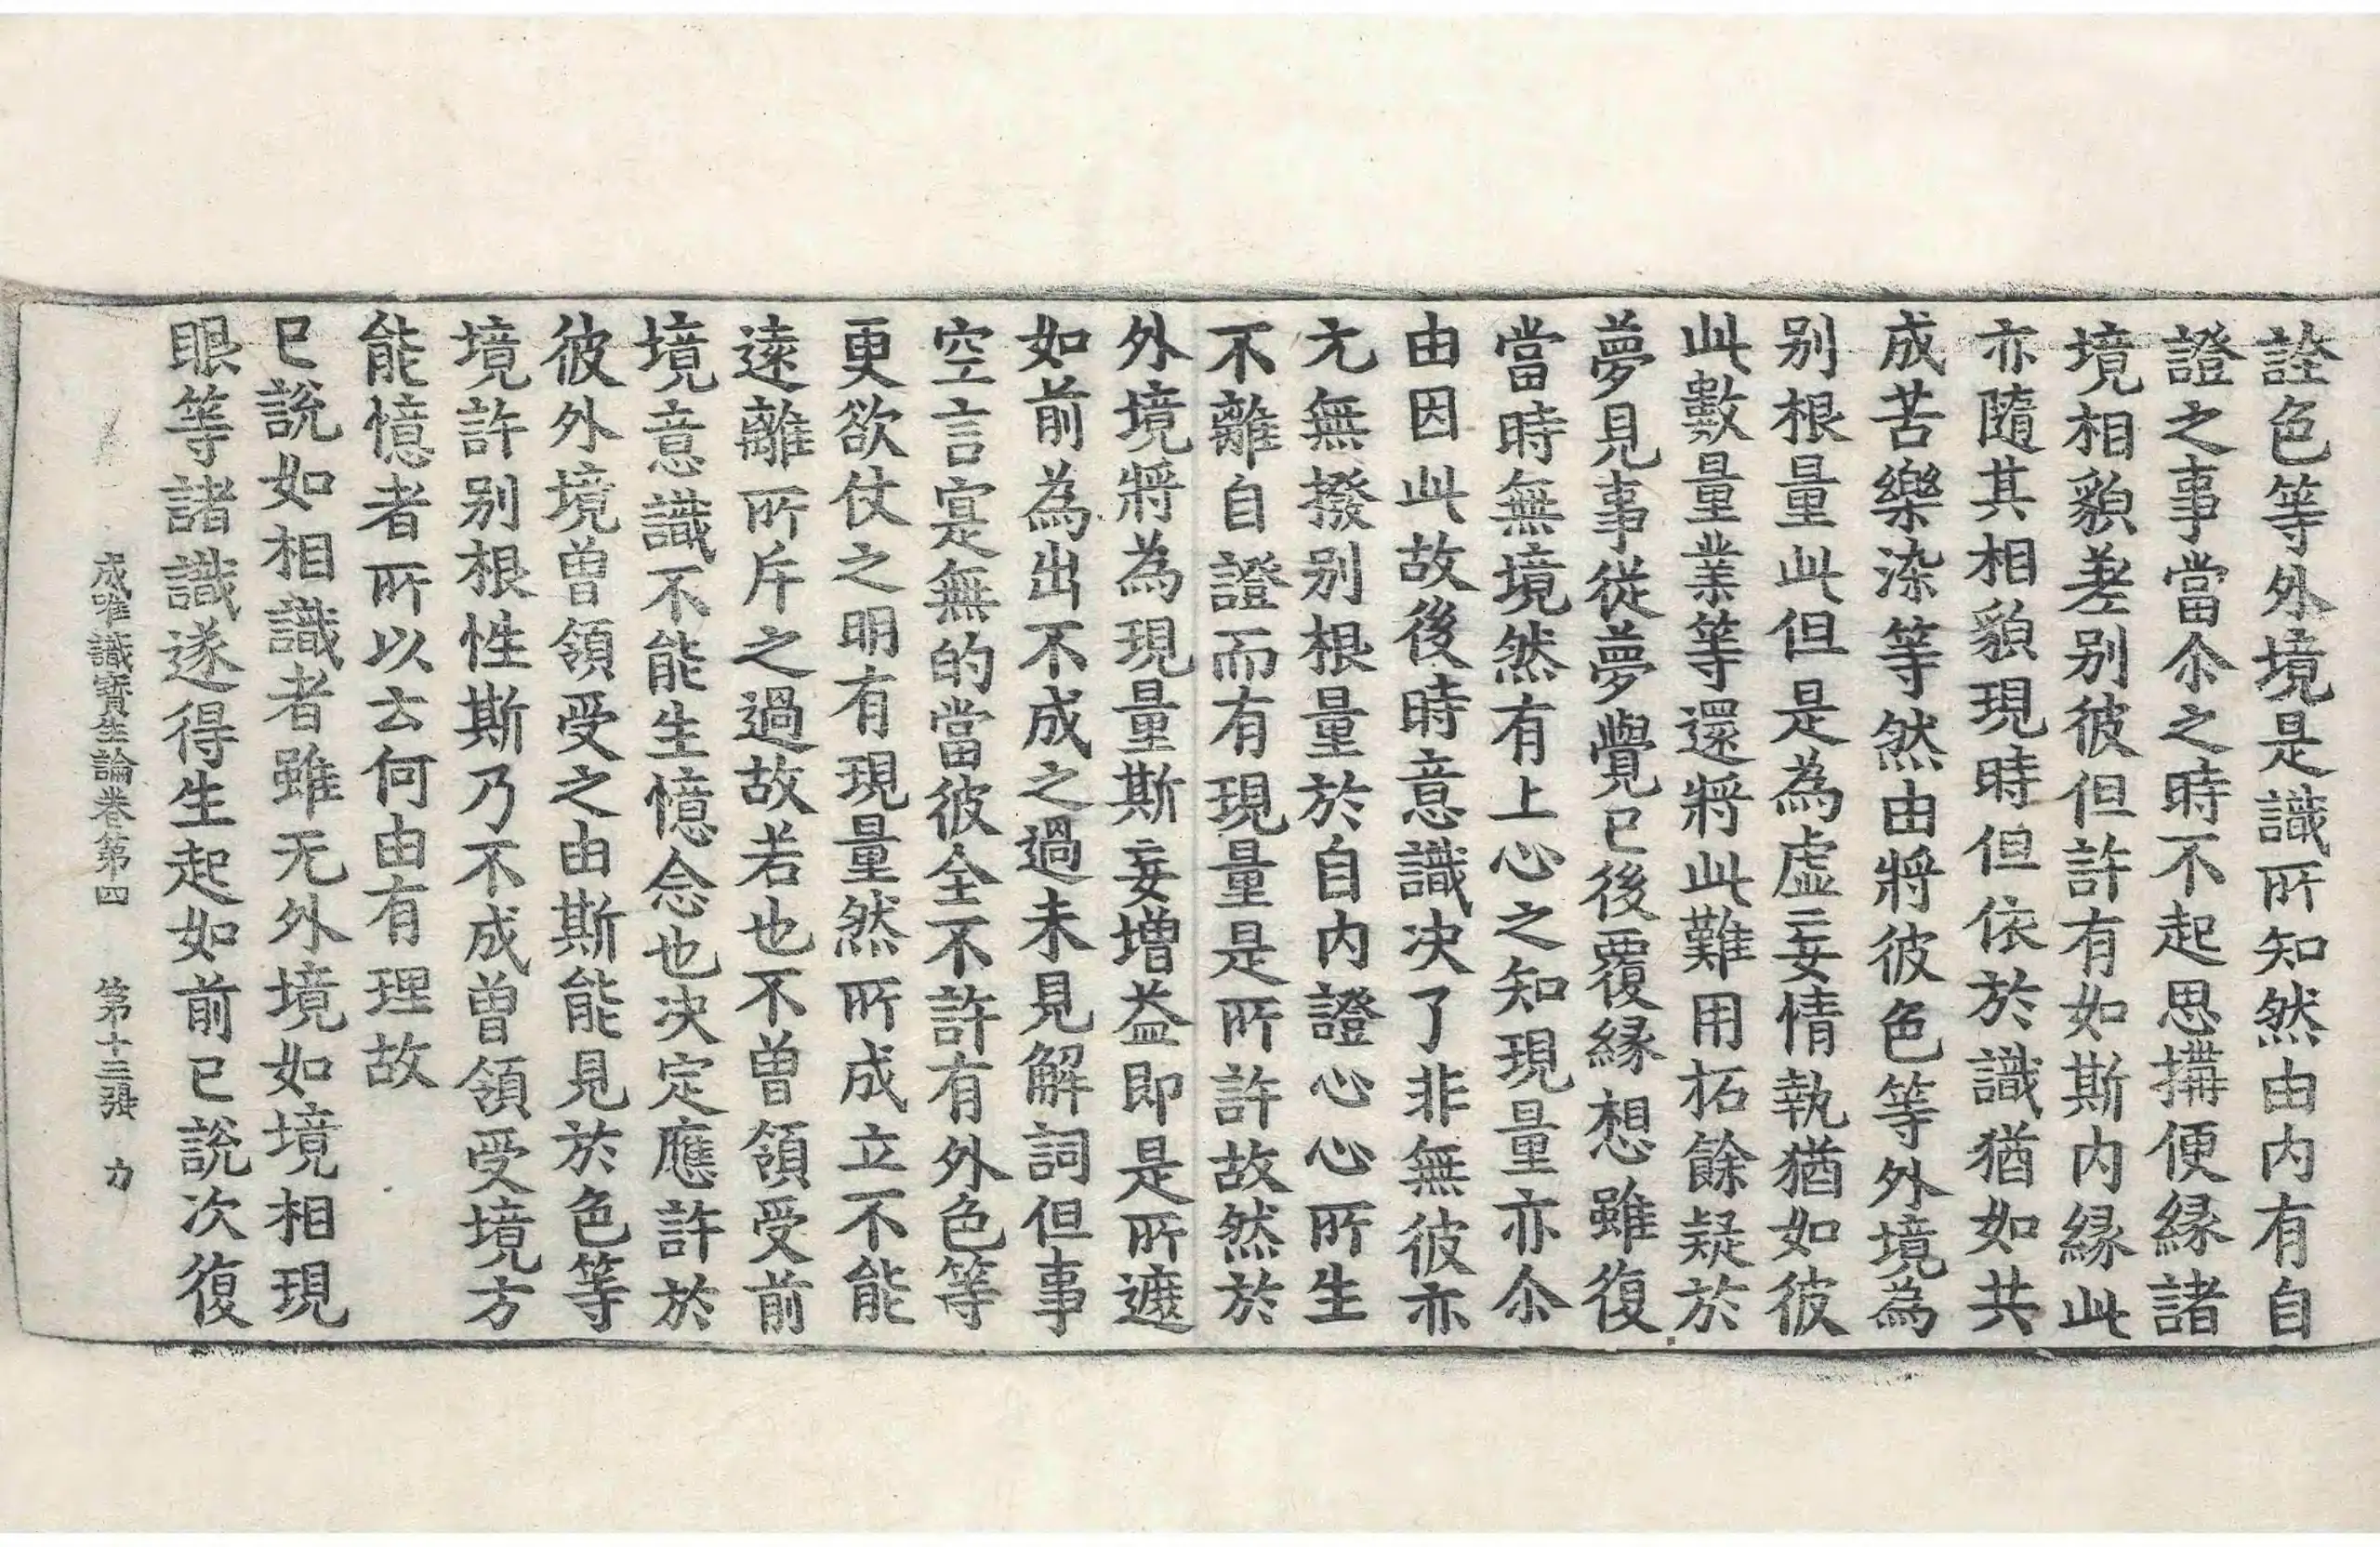 詮色等外境是識所知然由內有自
證之事當尒之時不起思搆便緣諸
境相貌差別彼但許有如斯內緣此
亦隨其相貌現時但依於識猶如共
成苦樂染等然由將彼色等外境為
別根量此但是為虛妄情執猶如彼
此數量業等還將此難用拓餘疑於
夢見事從夢覺已後覆緣想雖復
當時無境然有上心之知現量亦尒
由因此故後時意識決了非無彼亦
尢無撥別根量於自內證心心所生
不離自證而有現量是所許故然於
外境將為現量斯妄增益即是所遮
如前為出不成之過未見解詞但事
空言寔無的當彼全不許有外色等
更欲仗之明有現量然所成立不能
遠離所斥之過故若也不曾領受前
境意識不能生憶念也決定應許於
彼外境曾領受之由斯能見於色等
境許別根性斯乃不成曾領受境方
能憶者所以云何由有理故
已說如相識者雖无外境如境相現
眼等諸識遂得生起如前已說次復
成唯識寶生論卷第四 第十三張 力